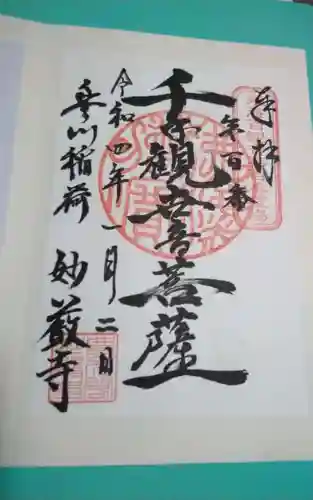 奉拝
㐧百番
千手観世音菩薩
令和四年一月二日
豊川稲荷
妙厳寺